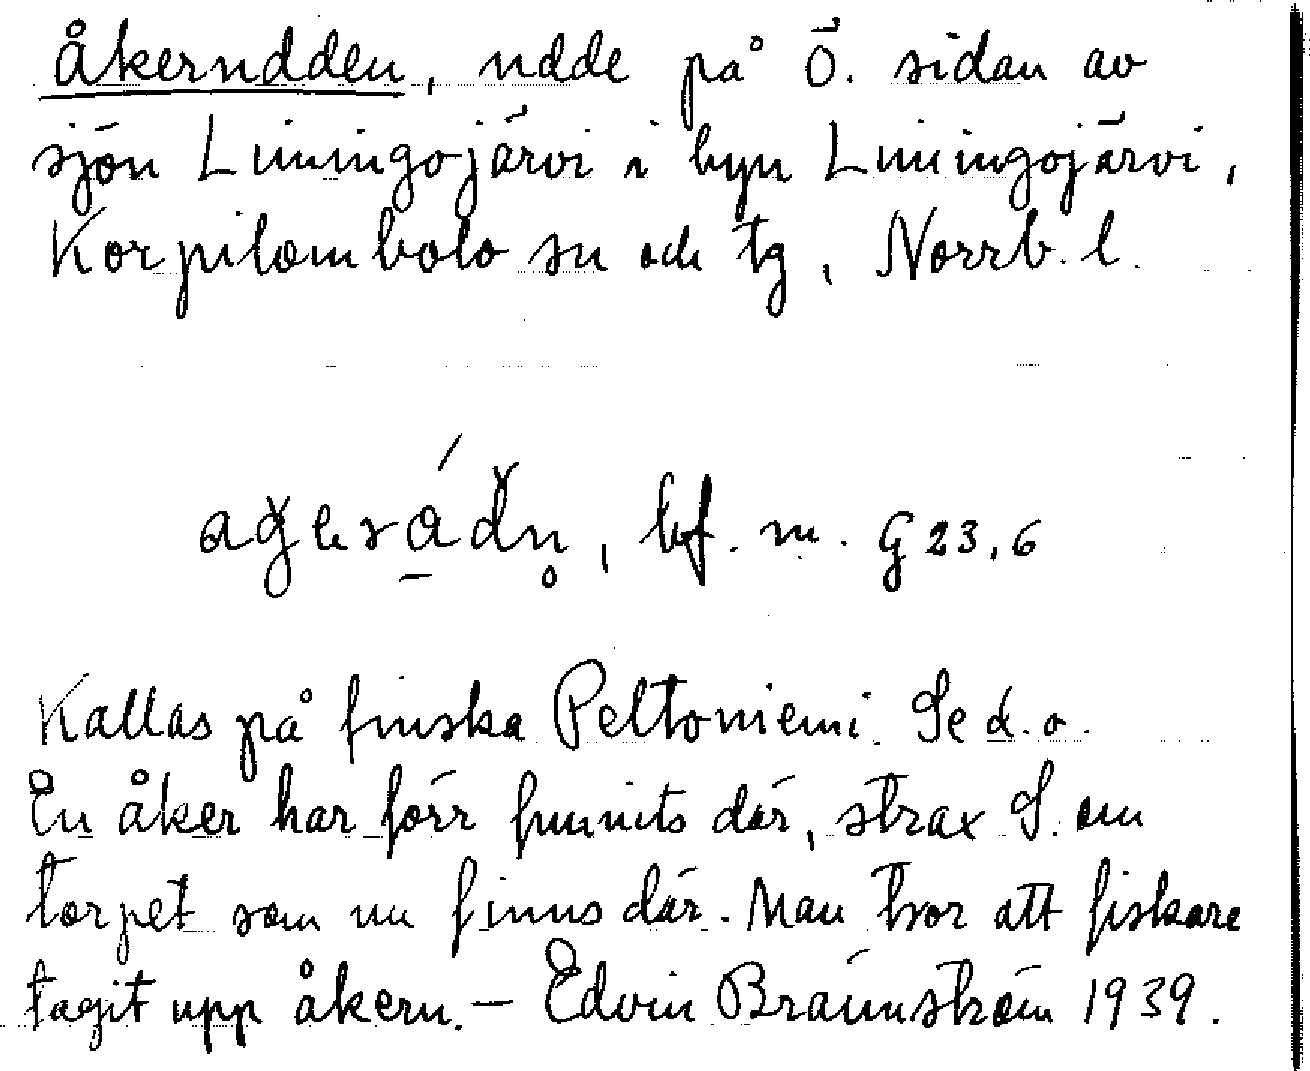 Åkerudden, udde på Ö. sidan av
sjön Liiningojärvi i byn Liiningojärvi,
Korpilombolo sn och tg, Norrb. l.
bf. m. G 23,6
Kallas på finska Peltoniemi. Se d. o.
En åker har förr funnits där, strax S. om
torpet som nu finns där. Man tror att fiskare
tagit upp åkern. — Edvin Brännström 1939.